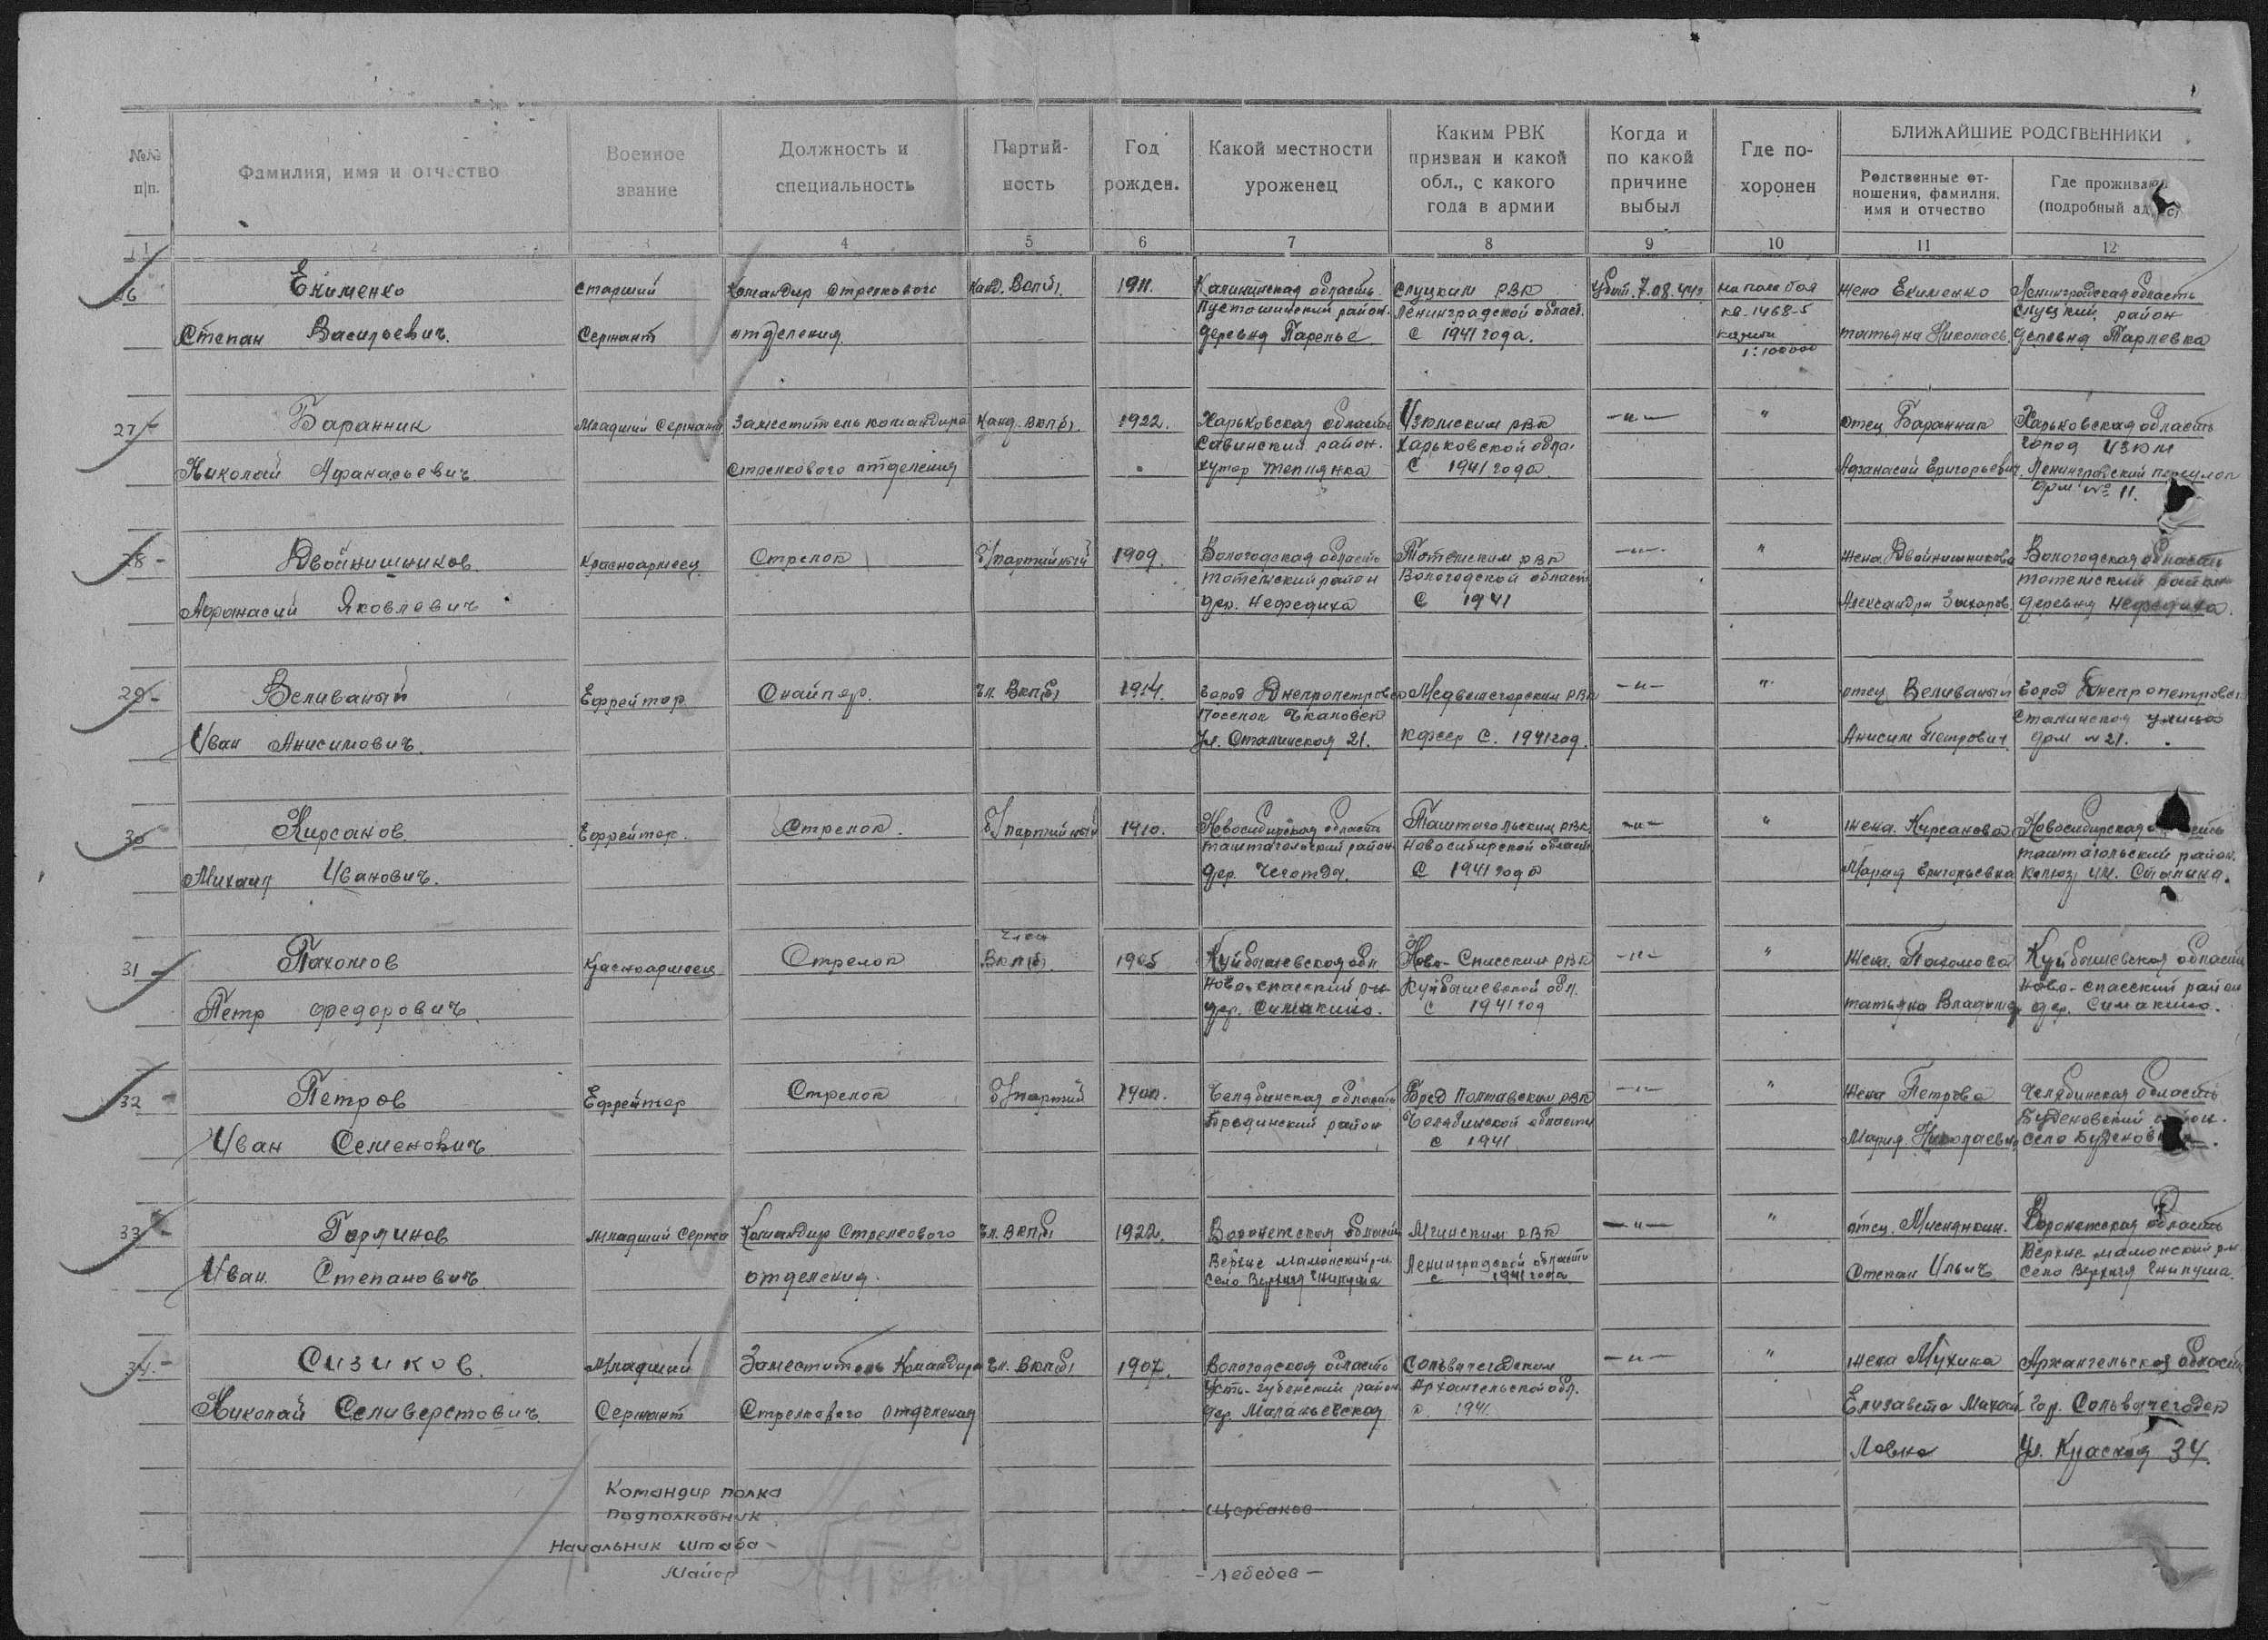 №№ п|п.
Фамилия, имя и отчество
Военное звание
Должность и специальность
Партий-ность
Год рожден.
Какой местности уроженец
Каким РВК призван и какой обл., с какого года в армии
Когда и по какой причине выбыл
Где по-хоронен
БЛИЖАЙШИЕ РОДСТВЕННИКИ
Родственные от-ношения, фамилия, имя и отчество
Где проживают (подробный адрес)
1 2 3 4 5 6 7 8 9 10 11 12
26 Екименко старший командир стрелкового канд. ВКП(б) 1911. Калининская область Слуцким РВК убит 7.08.44г на поле боя жена Екименко Ленинградская область
Пустошинский район Ленинградской област. кв-1468-5 Слуцкий район
Степан Васильевич. Сержант отделения. деревня Парелье с 1941 года. карты татьяна Николаев. деревня Тарлевка
1:100000
27 Баранник младший сержант Заместитель командира канд. ВКП(б). 1922. Харьковская область Изюмским РВК —"— " отец Баранник Харьковская область
Савинский район. Харьковской обла. город Изюм
Николай Афанасьевич. стрелкового отделения хутор теплянка С 1941 года Афанасий Григорьевич. Ленинградский переулок
дом № 11.
28 - Двойнишников. Красноармеец Стрелок б/партийный 1909. Вологодская область Тотемским РВК —"— " жена Двойнишникова Вологодская область
тотемский район Вологодской област тотемский район
Афанасий Яковлевич дер. Нефедиха С 1941 Александра Захаров. деревня Нефедиха.
29 - Веливаный Ефрейтор Снайпер. чл. ВКП(б) 1914. город Днепропетровск Медвежегорским РВК —"— " отец Веливаный город Днепропетровск
Поселок Чкаловск Сталинская улица
Иван Анисимович. ул. Сталинская 21. кфсср С. 1941 год. Анисим Петрович дом № 21.
30 Кирсанов. Ефрейтор. Стрелок. б/партийный 1910. Новосибирская область Таштагольским РВК —"— " жена. Кирсанова Новосибирская область
таштагольский район Новосибирской област таштагольский район.
Михаил Иванович. дер. С 1941 года Мария Григорьевна колхоз им. Сталина.
31 - Пахомов Красноармеец Стрелок член ВКП(б). 1905 Куйбышевская обл Ново-Спасским РВК —"— " Жена. Пахомова Куйбышевская область
Ново-спасский р-н Куйбышевской обл. Ново-спасский район
Петр Федорович дер. Симакино. с 1941 год татьяна Владимир дер. Симакино.
32 - Петров Ефрейтор Стрелок б/партий Челябинская область Бред Полтавским РВК —"— " Жена Петрова Челябинская область
Брединский район Челябинской области Буденовский район.
Иван Семенович с 1941 Мария Николаевна село
33 - младший Сержа Командир Стрелкового чл. ВКП(б) 1922. Воронежская область Мгинским РВК —"— " отец. Воронежская область
Верхне мамонский р-н Ленинградской области Верхне мамонский р-н
Иван. Степанович отделения. село Верхняя Гнилуша с 1941 года Степан Ильич село Верхняя Гнилуша.
34.- Сизиков. Младший Заместитель Командира чл. ВКП(б) 1907. Вологодская область Сольвычегодским —"— " жена Мухина Архангельская область
Усть-Кубенский район Архангельской обл.
Николай Селиверстович Сержант Стрелкового отделения дер. Маланьевская с. 1941. Елизавета Михай гор. Сольвычегодск
ловна Ул. Красная 34.
Командир полка
подполковник Щербаков
Начальник штаба -
Майор - Лебедев -